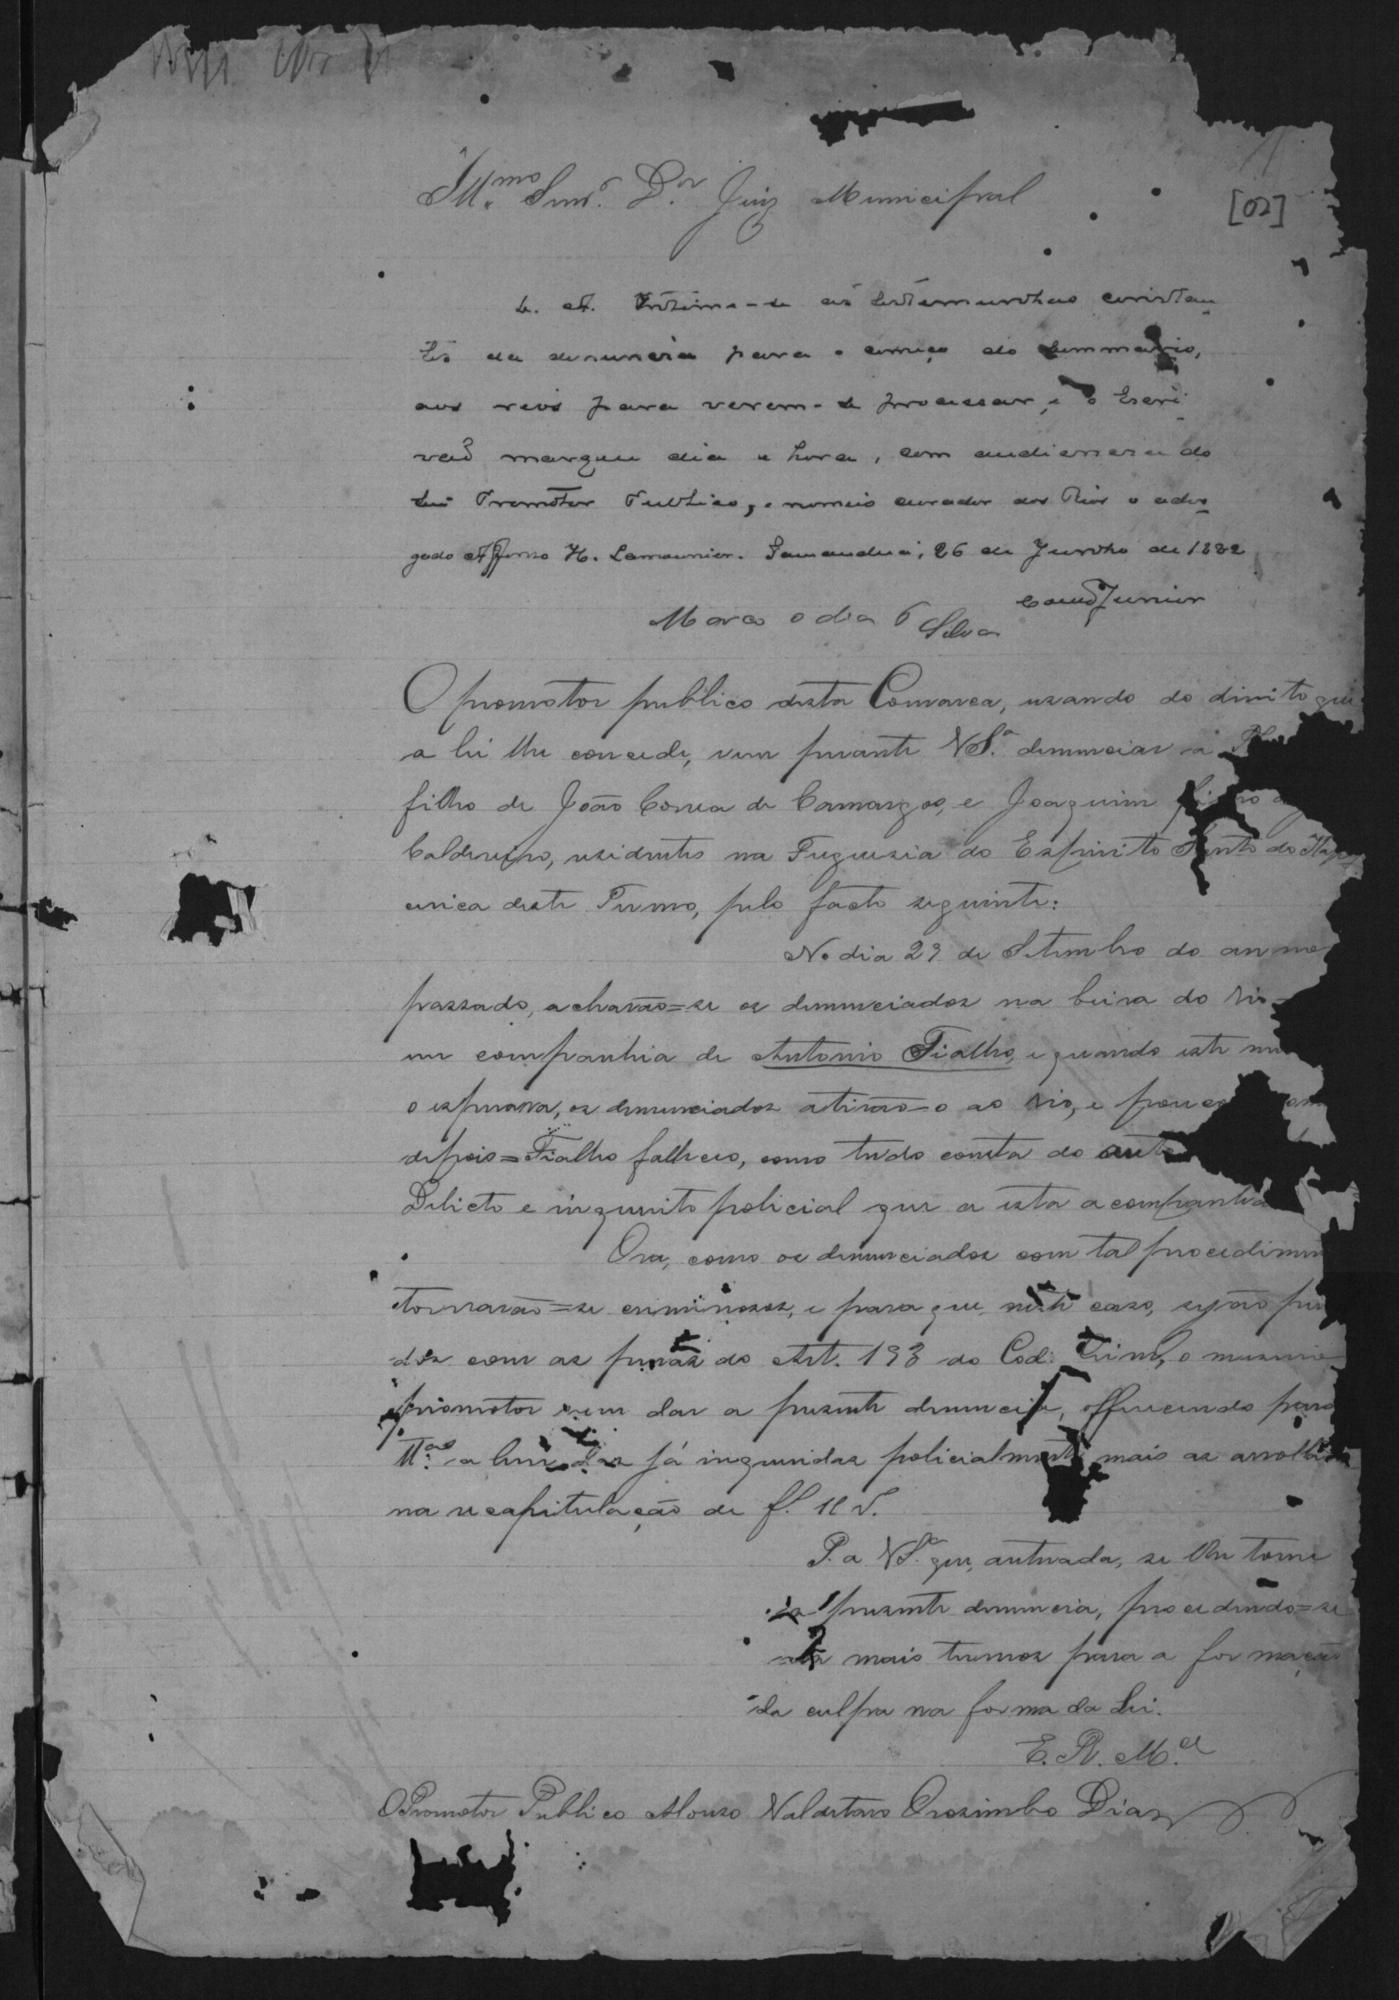 Illmo. Snr. Dor. Juiz Municipal
[02]
D. A. Intime-se as testemunhas constan-
tes da denuncia para o começo do summario,
aos reos para verem-se processar, e o Escri-
vaõ marque dia e hora, com audiencia do
Promotor Publico, e nomeio curador dos Reos o advo-
gado Affonso H. Lamounier. Tamanduá, 26 de Junho de 1882
Couto Junior
Marco o dia 6 Silva
O promotor publico desta Comarca, usando do direito que
a lei lhe concede, vem perante VS.a denunciar a
filho de João Correa de Camargos, e Joaquim
Caldereiro, residentes na Freguesia do Espirito Santo do Itape
cerica deste Termo, pelo facto seguinte:
No dia 29 de Setembro do anno
passado, acharão=se os denunciados na beira do rio
em companhia de Antonio Fialho, e quando este
o esperava, os denunciados atirão-o ao rio, e pouco
depois=Fialho falleceo, como tudo consta do auto
Delicto e inquerito policial que a esta acompanha
Ora, como os denunciados com tal procedimen
tornarão=se criminosos, e para que, neste caso, sejão pu
dos com as penas do Art. 193 do Cod. Crim., o mesmo
promotor vem dar a presente denuncia, offerecendo para
T.as alem das já inqueridas policialmente mais as arrolla
na recapitulação de f. 11 V.
P. a VS.a que, autuada, se lhe tome
a presente denuncia, procedendo=se
mais termos para a formação
da culpa na forma da Lei.
E. R. M.cê
O Promotor Publico Alonso Valdetaro Orosimbo Dias